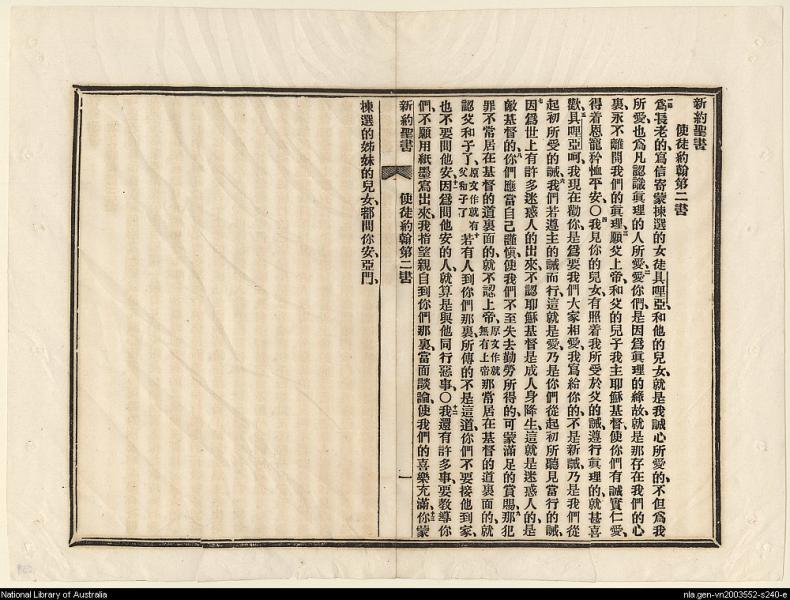 新約聖書
使徒約翰第二書
爲長老的寫信寄蒙揀選的女徒具哩亞和他的兒女就是我誠心所愛的不但爲我
所愛也爲凡認識眞理的人所愛愛你們是因爲眞理的緣故就是那存在我們的心
裏永不離開我們的眞理願父上帝和父的兒子我主耶穌基督使你們有誠實仁愛
得着恩寵矜恤平安〇我見你的兒女有照着我所受於父的誡遵行眞理的就甚喜
歡具哩亞呵我現在勸你是爲要我們大家相愛我寫給你的不是新誡乃是我們從
起初所受的誡我們若遵主的誡而行這就是愛乃是你們從起初所聽見當行的誡
因爲世上有許多迷惑人的出來不認耶穌基督是成人身降生這就是迷惑人的是
敵基督的你們應當自己謹愼使我們不至失去勤勞所得的可蒙滿足的賞賜那犯
罪不常居在基督的道裏面的就不認上帝原文作就無有上帝那常居在基督的道裏面的就
認父和子了原文作就有父和子了若有人到你們那裏所傳的不是這道你們不要接他到家
也不要問他安因爲問他安的人就算是與他同行惡事〇我還有許多事要教導你
們不願用紙墨寫出來我指望親自到你們那裏當面談論使我們的喜樂充滿你蒙
新約聖書 使徒約翰第二書 一
揀選的姊妹的兒女都問你安亞門
National Library of Australia
nla.gen-vn2003552-s240-e